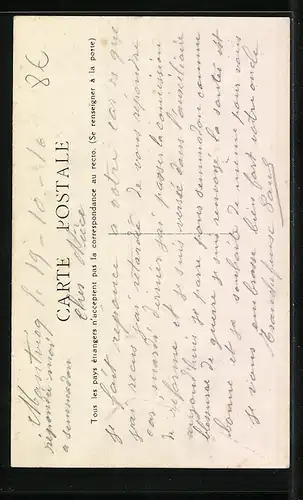 8€
CARTE POSTALE
Tous les pays étrangers n'acceptent pas la correspondance au recto. (Se renseigner à la poste)
le 19-10-16
répondez moi
a semmadon
Chers
je fait reponce a votre carte que
j'ai reçus j'ai retardé de vous repondre
car mardi dernier j'ai passer la commission
de reforme et je suis versée dans l'auxiliaire
aujourd'hui je parre pour semmadon comme
blessure de guerre je suis renvoyé la santée est
bonne et je souhaite de meme pour vous
je vous embrasse bien fort votre oncle